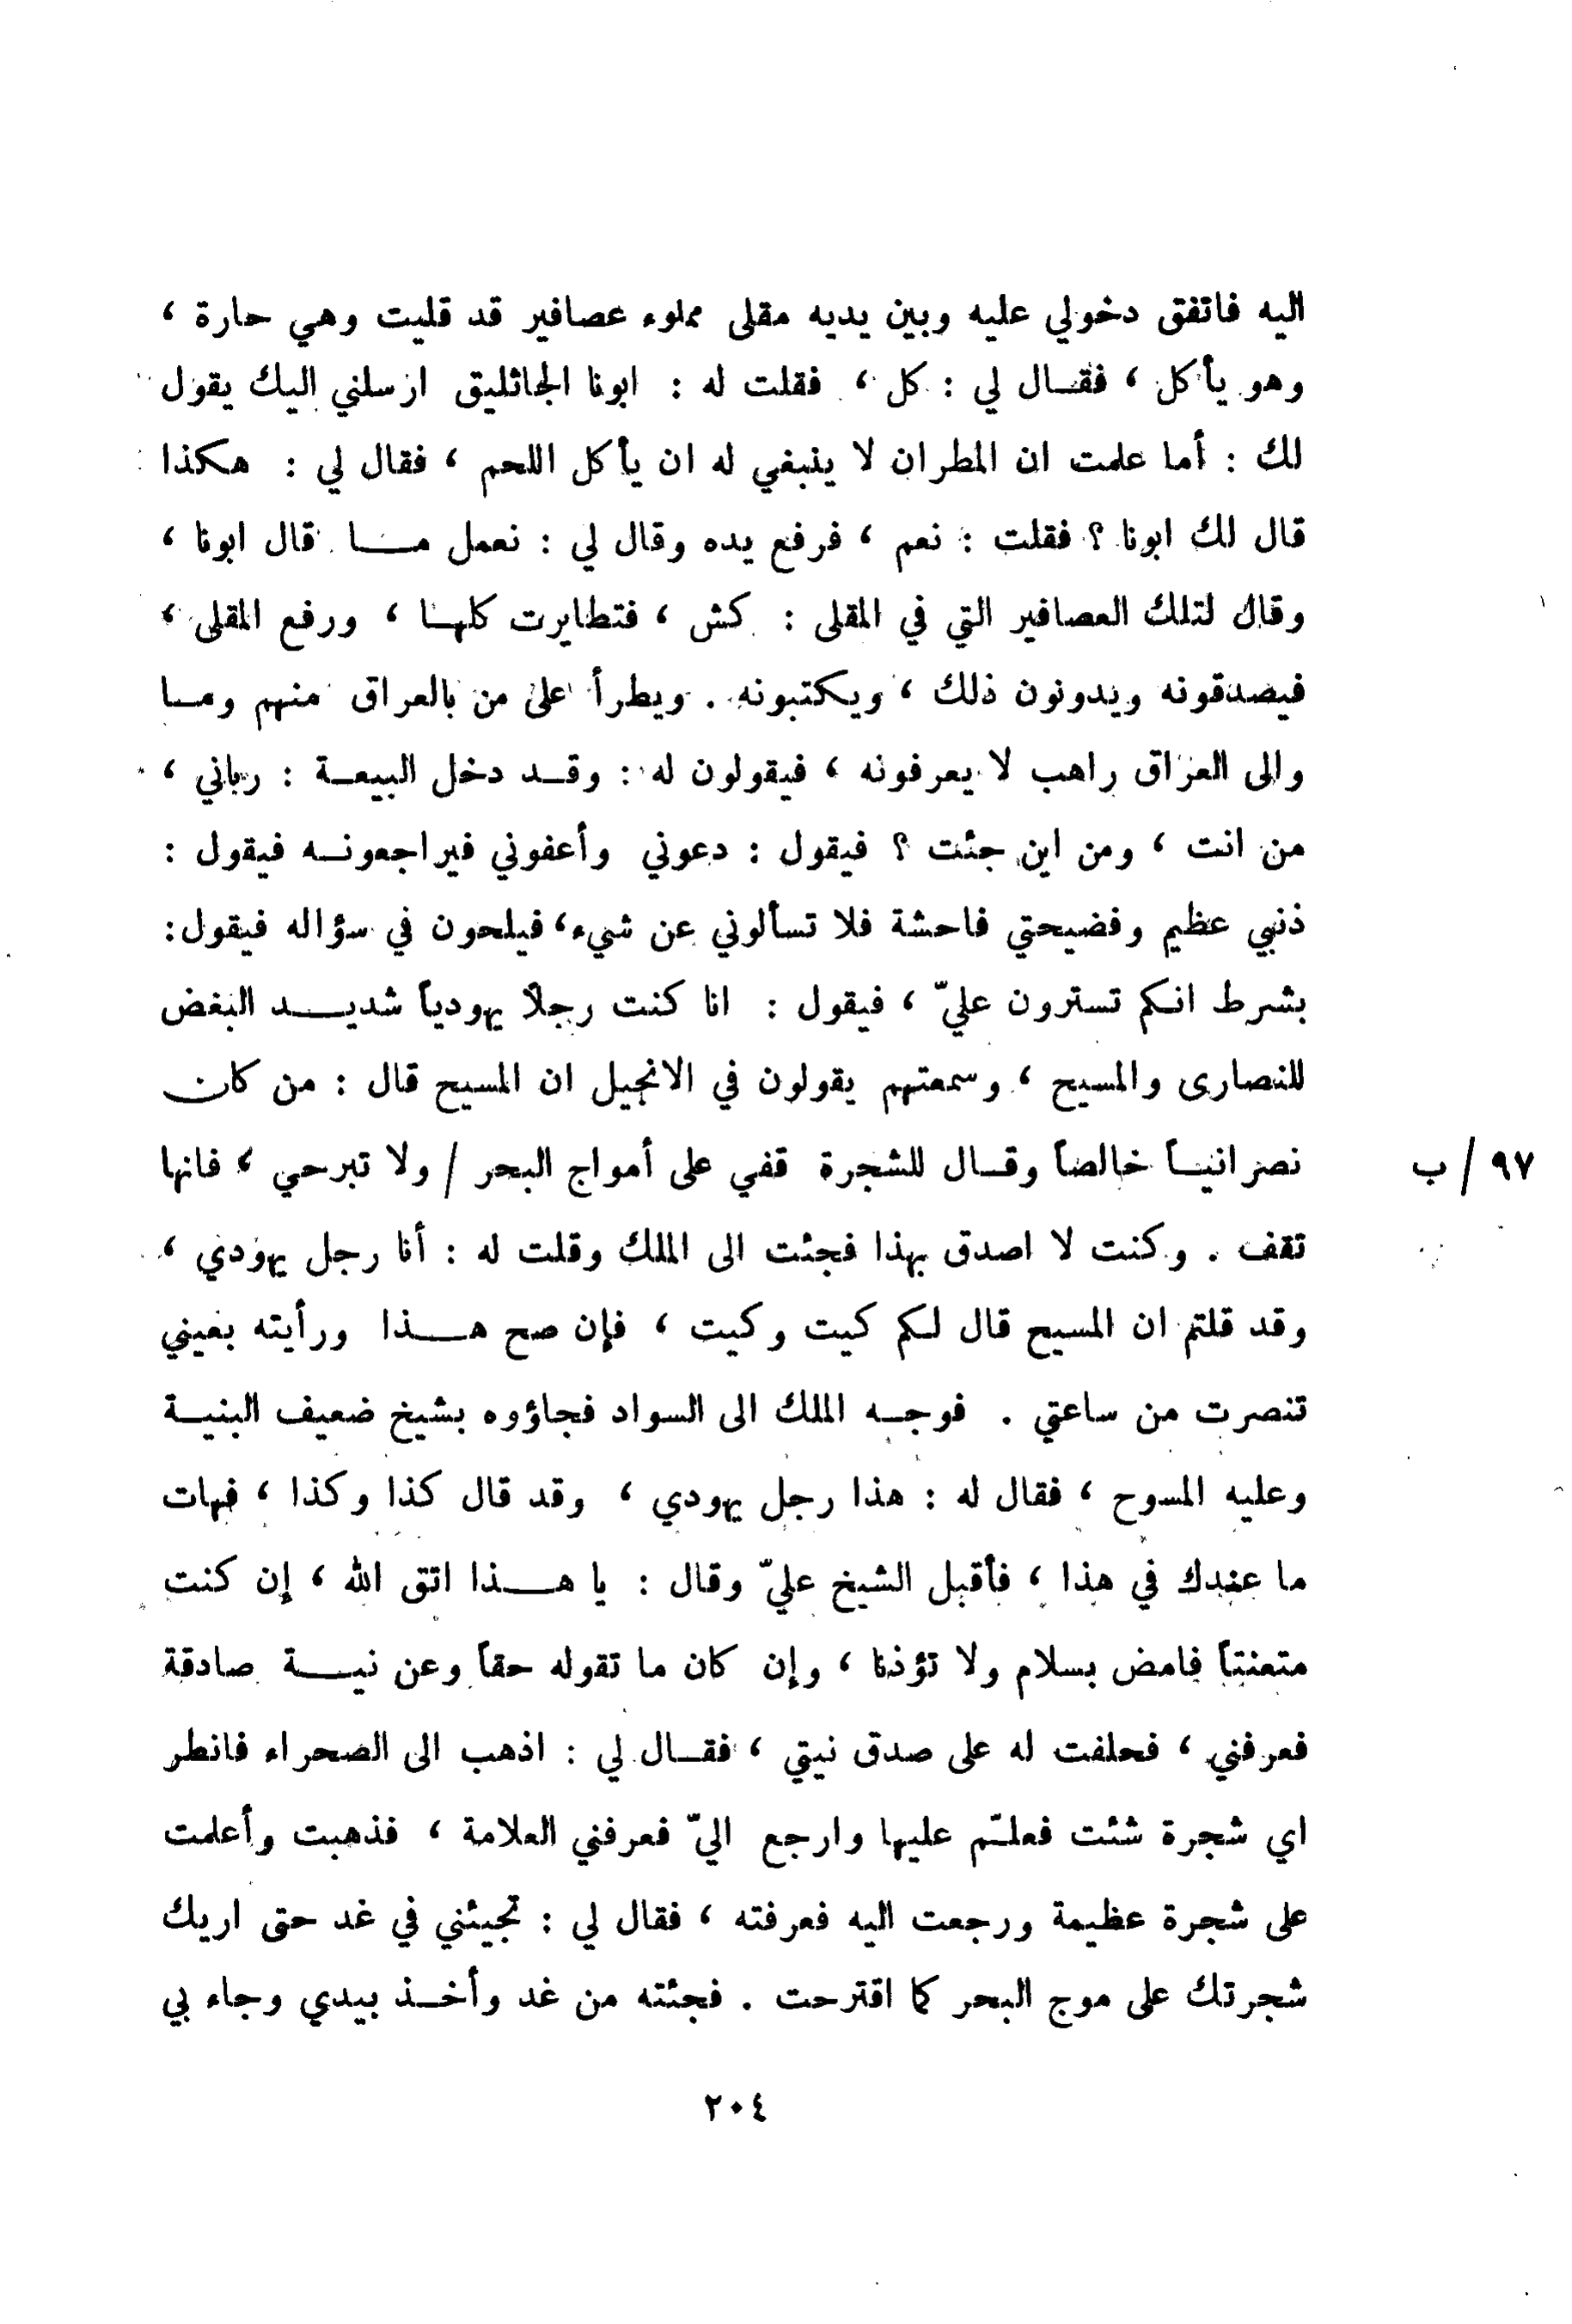 اليه فاتفق دخولي عليه وبين يديه مقلى مملوء عصافير قد قليت وهي حارة ،
وهو يأكل ، فقال لي : كل ، فقلت له : ابونا الجاثليق ارسلني اليك يقول
لك : أما علمت ان المطران لا ينبغي له ان يأكل اللحم ، فقال لي : هكذا
قال لك ابونا ؟ فقلت : نعم ، فرفع يده وقال لي : نعمل ما قال ابونا ،
وقال لتلك العصافير التي في المقلى : كش ، فتطايرت كلها ، ورفع المقلى ،
فيصدقونه ويدونون ذلك ، ويكتبونه . ويطرأ على من بالعراق منهم وما
والى العراق راهب لا يعرفونه ، فيقولون له : وقد دخل البيعة : رباني ،
من انت ، ومن اين جئت ؟ فيقول : دعوني وأعفوني فيراجعونه فيقول :
ذنبي عظيم وفضيحتي فاحشة فلا تسألوني عن شيء، فيلحون في سؤاله فيقول:
بشرط انكم تسترون عليّ ، فيقول : انا كنت رجلاً يهودياً شديد البغض
للنصارى والمسيح ، وسمعتهم يقولون في الانجيل ان المسيح قال : من كان
نصرانياً خالصاً وقال للشجرة قفي على أمواج البحر / ولا تبرحي ، فانها ٩٧ / ب
تقف . وكنت لا اصدق بهذا فجئت الى الملك وقلت له : أنا رجل يهودي ،
وقد قلتم ان المسيح قال لكم كيت وكيت ، فإن صح هذا ورأيته بعيني
تنصرت من ساعتي . فوجه الملك الى السواد فجاؤوه بشيخ ضعيف البنية
وعليه المسوح ، فقال له : هذا رجل يهودي ، وقد قال كذا وكذا ، فهات
ما عندك في هذا ، فأقبل الشيخ عليّ وقال : يا هذا اتق الله ، إن كنت
متعنتاً فامض بسلام ولا تؤذنا ، وإن كان ما تقوله حقاً وعن نية صادقة
فعرفني ، فحلفت له على صدق نيتي ، فقال لي : اذهب الى الصحراء فانطر
اي شجرة شئت فعلّم عليها وارجع اليّ فعرفني العلامة ، فذهبت وأعلمت
على شجرة عظيمة ورجعت اليه فعرفته ، فقال لي : تجيئني في غد حتى اريك
شجرتك على موج البحر كما اقترحت . فجئته من غد وأخذ بيدي وجاء بي
٢٠٤